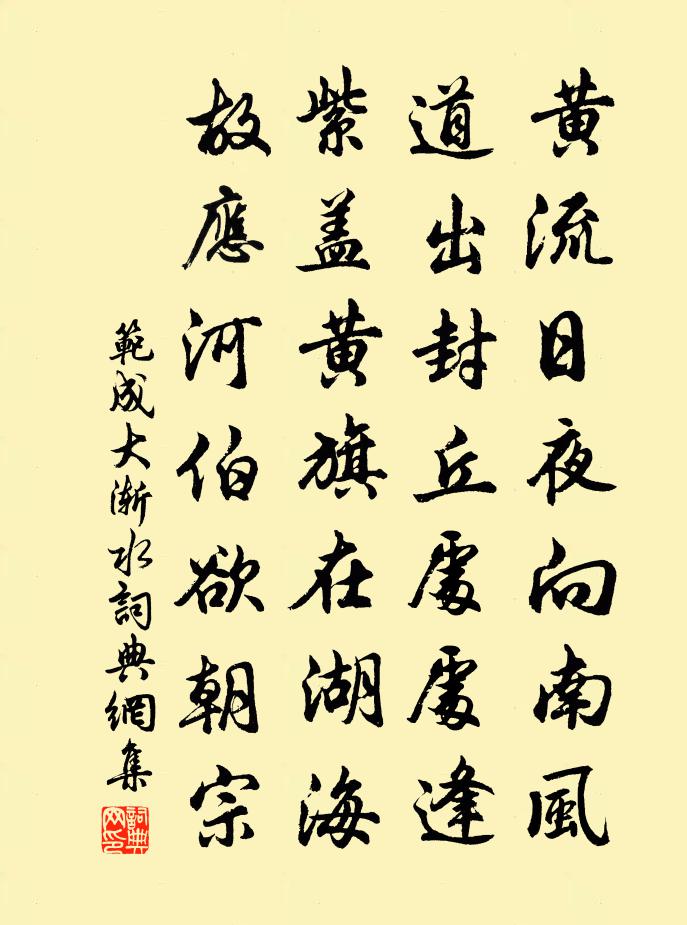 黄流日夜向南風
道出封丘處處逢
紫盖黄旗在湖海
故應河伯欲朝宗
範成大漸水詞典網集
詞典網印